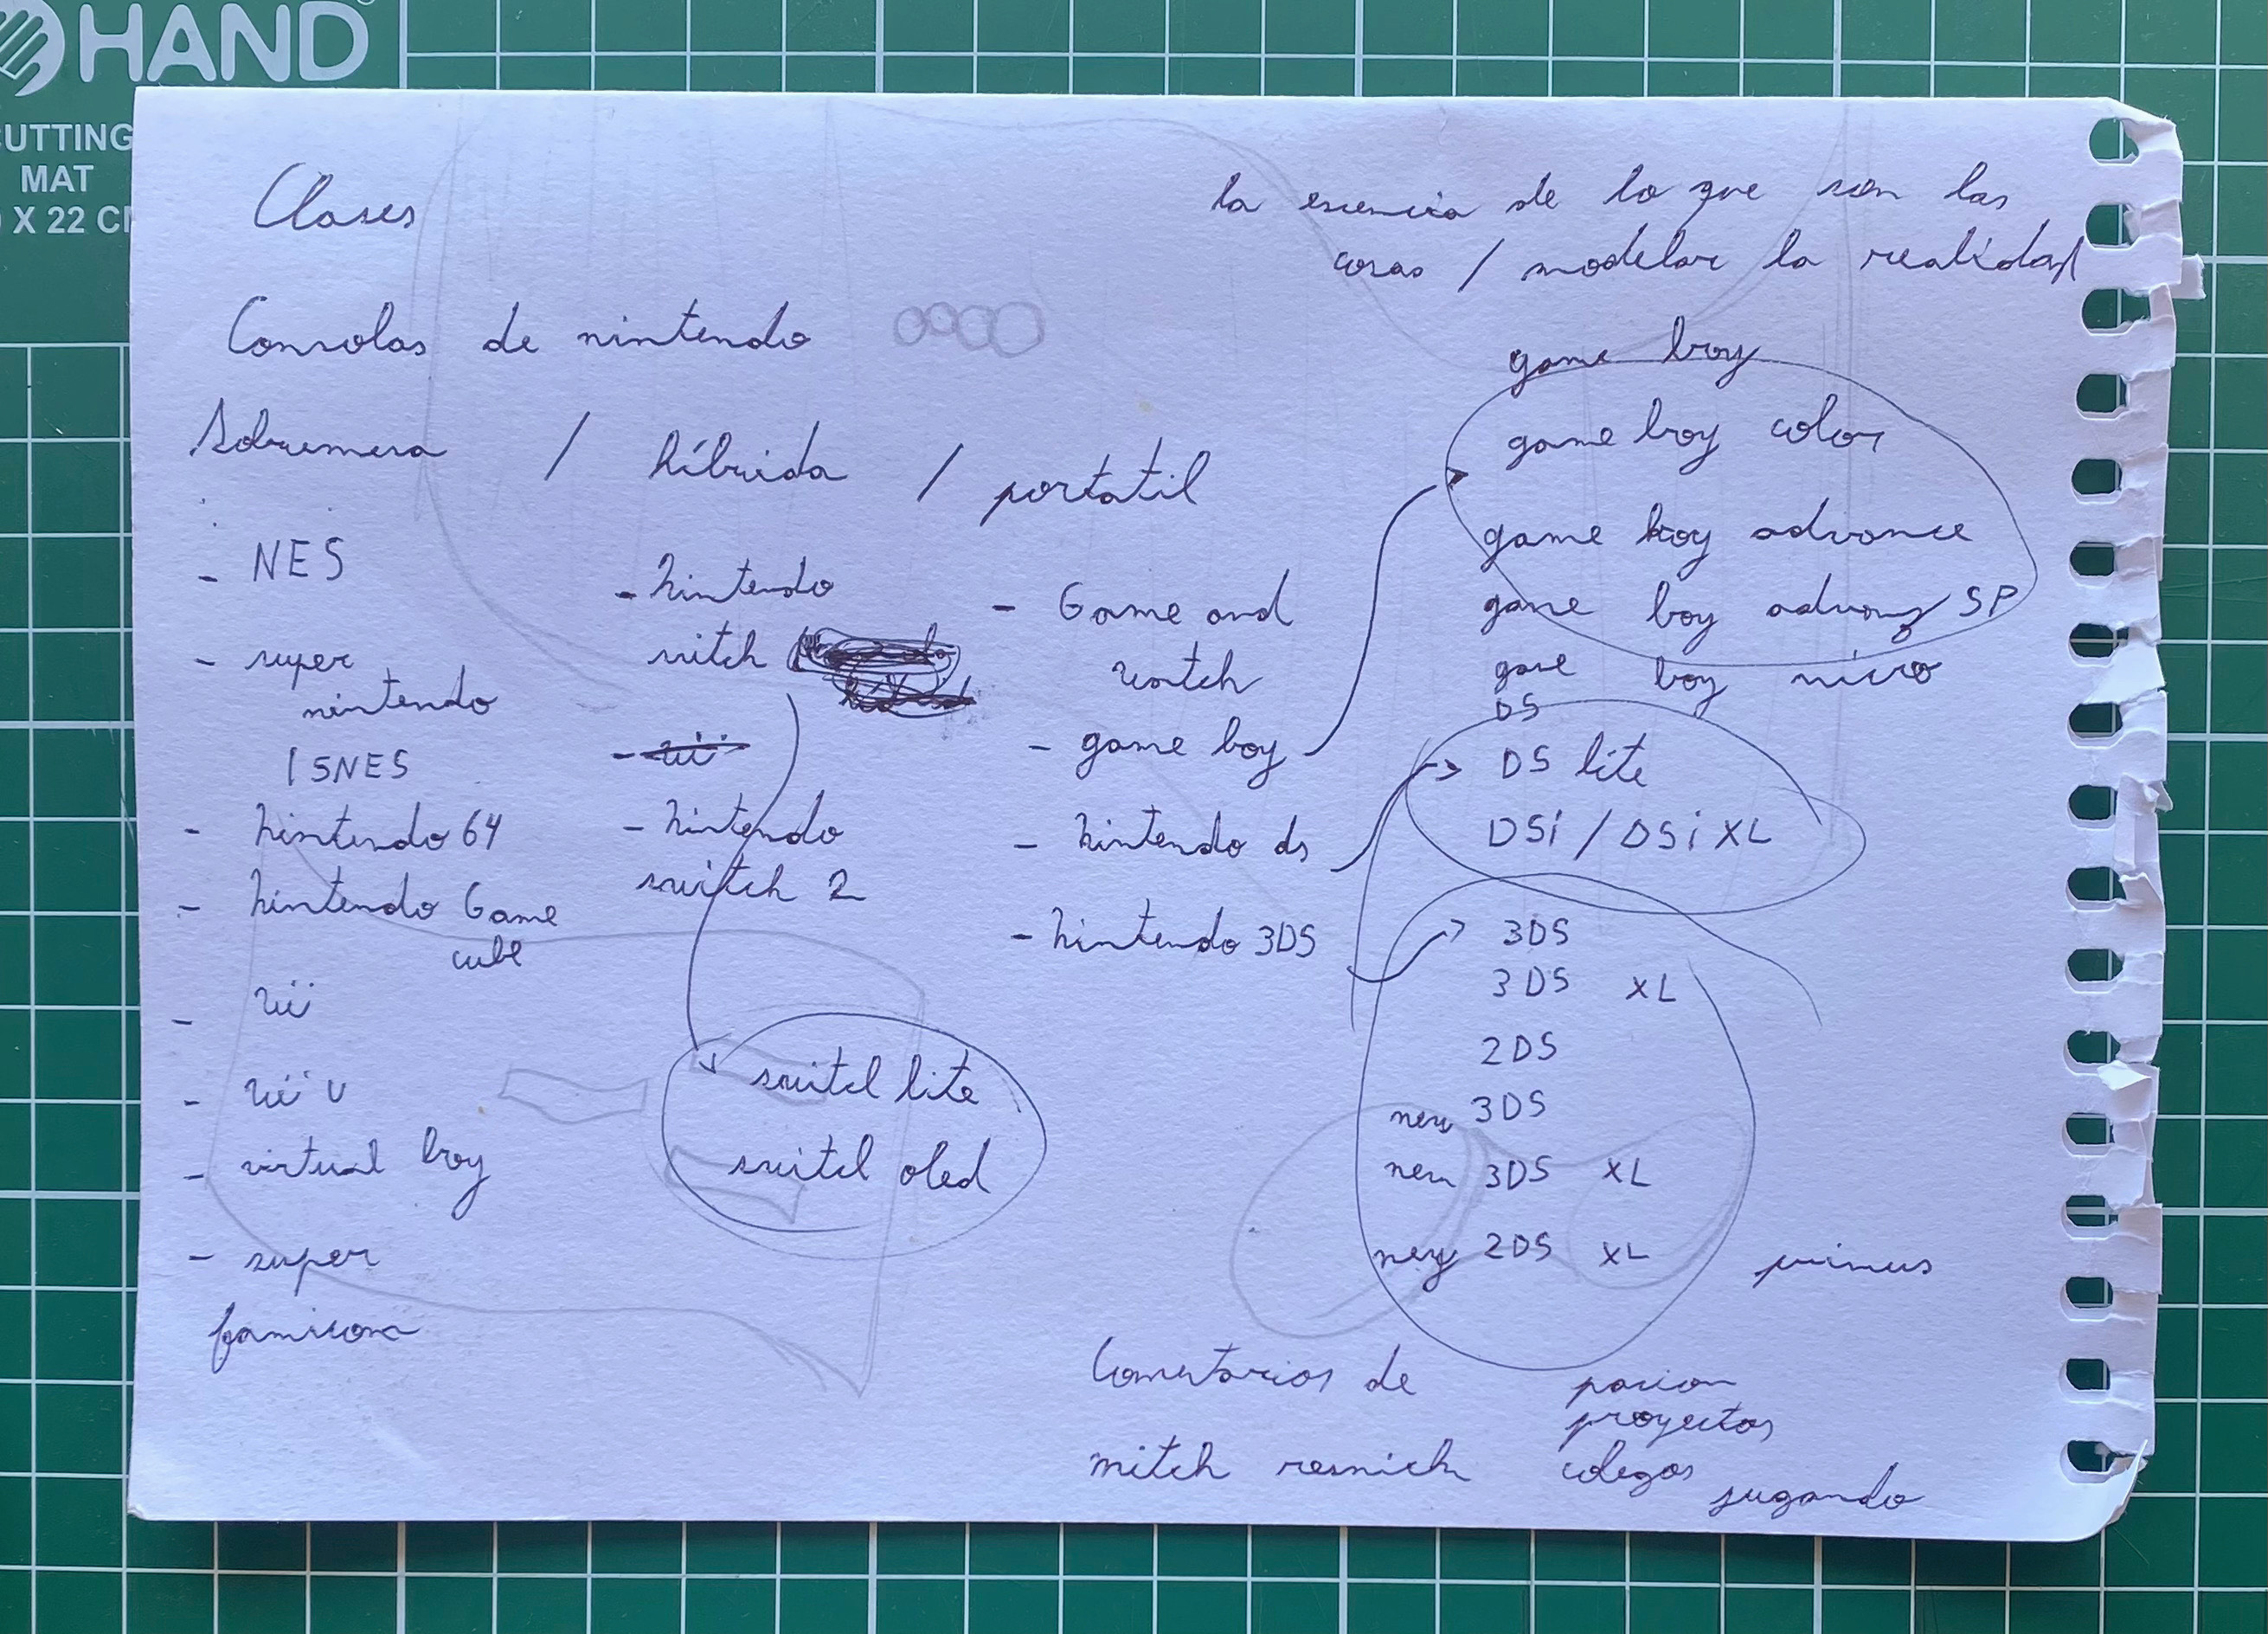 HAND
CUTTING
MAT
X 22 CM
Clases
la esencia de lo que son las
cosas / modelar la realidad
Consolas de nintendo
Sobremesa / híbrida / portatil
- NES
- super
nintendo
/ SNES
- nintendo 64
- nintendo Game
cube
- wii
- wii U
- virtual boy
- super
famicom
- nintendo
switch
- wii
- nintendo
switch 2
switch lite
switch oled
- Game and
watch
- game boy
- nintendo ds
- nintendo 3DS
game boy
game boy color
game boy advance
game boy advance SP
game boy micro
DS
DS lite
DSi / DSi XL
3DS
3DS XL
2DS
new 3DS
new 3DS XL
new 2DS XL
primus
Comentarios de
mitch resnick
pasion
proyectos
colegas
jugando